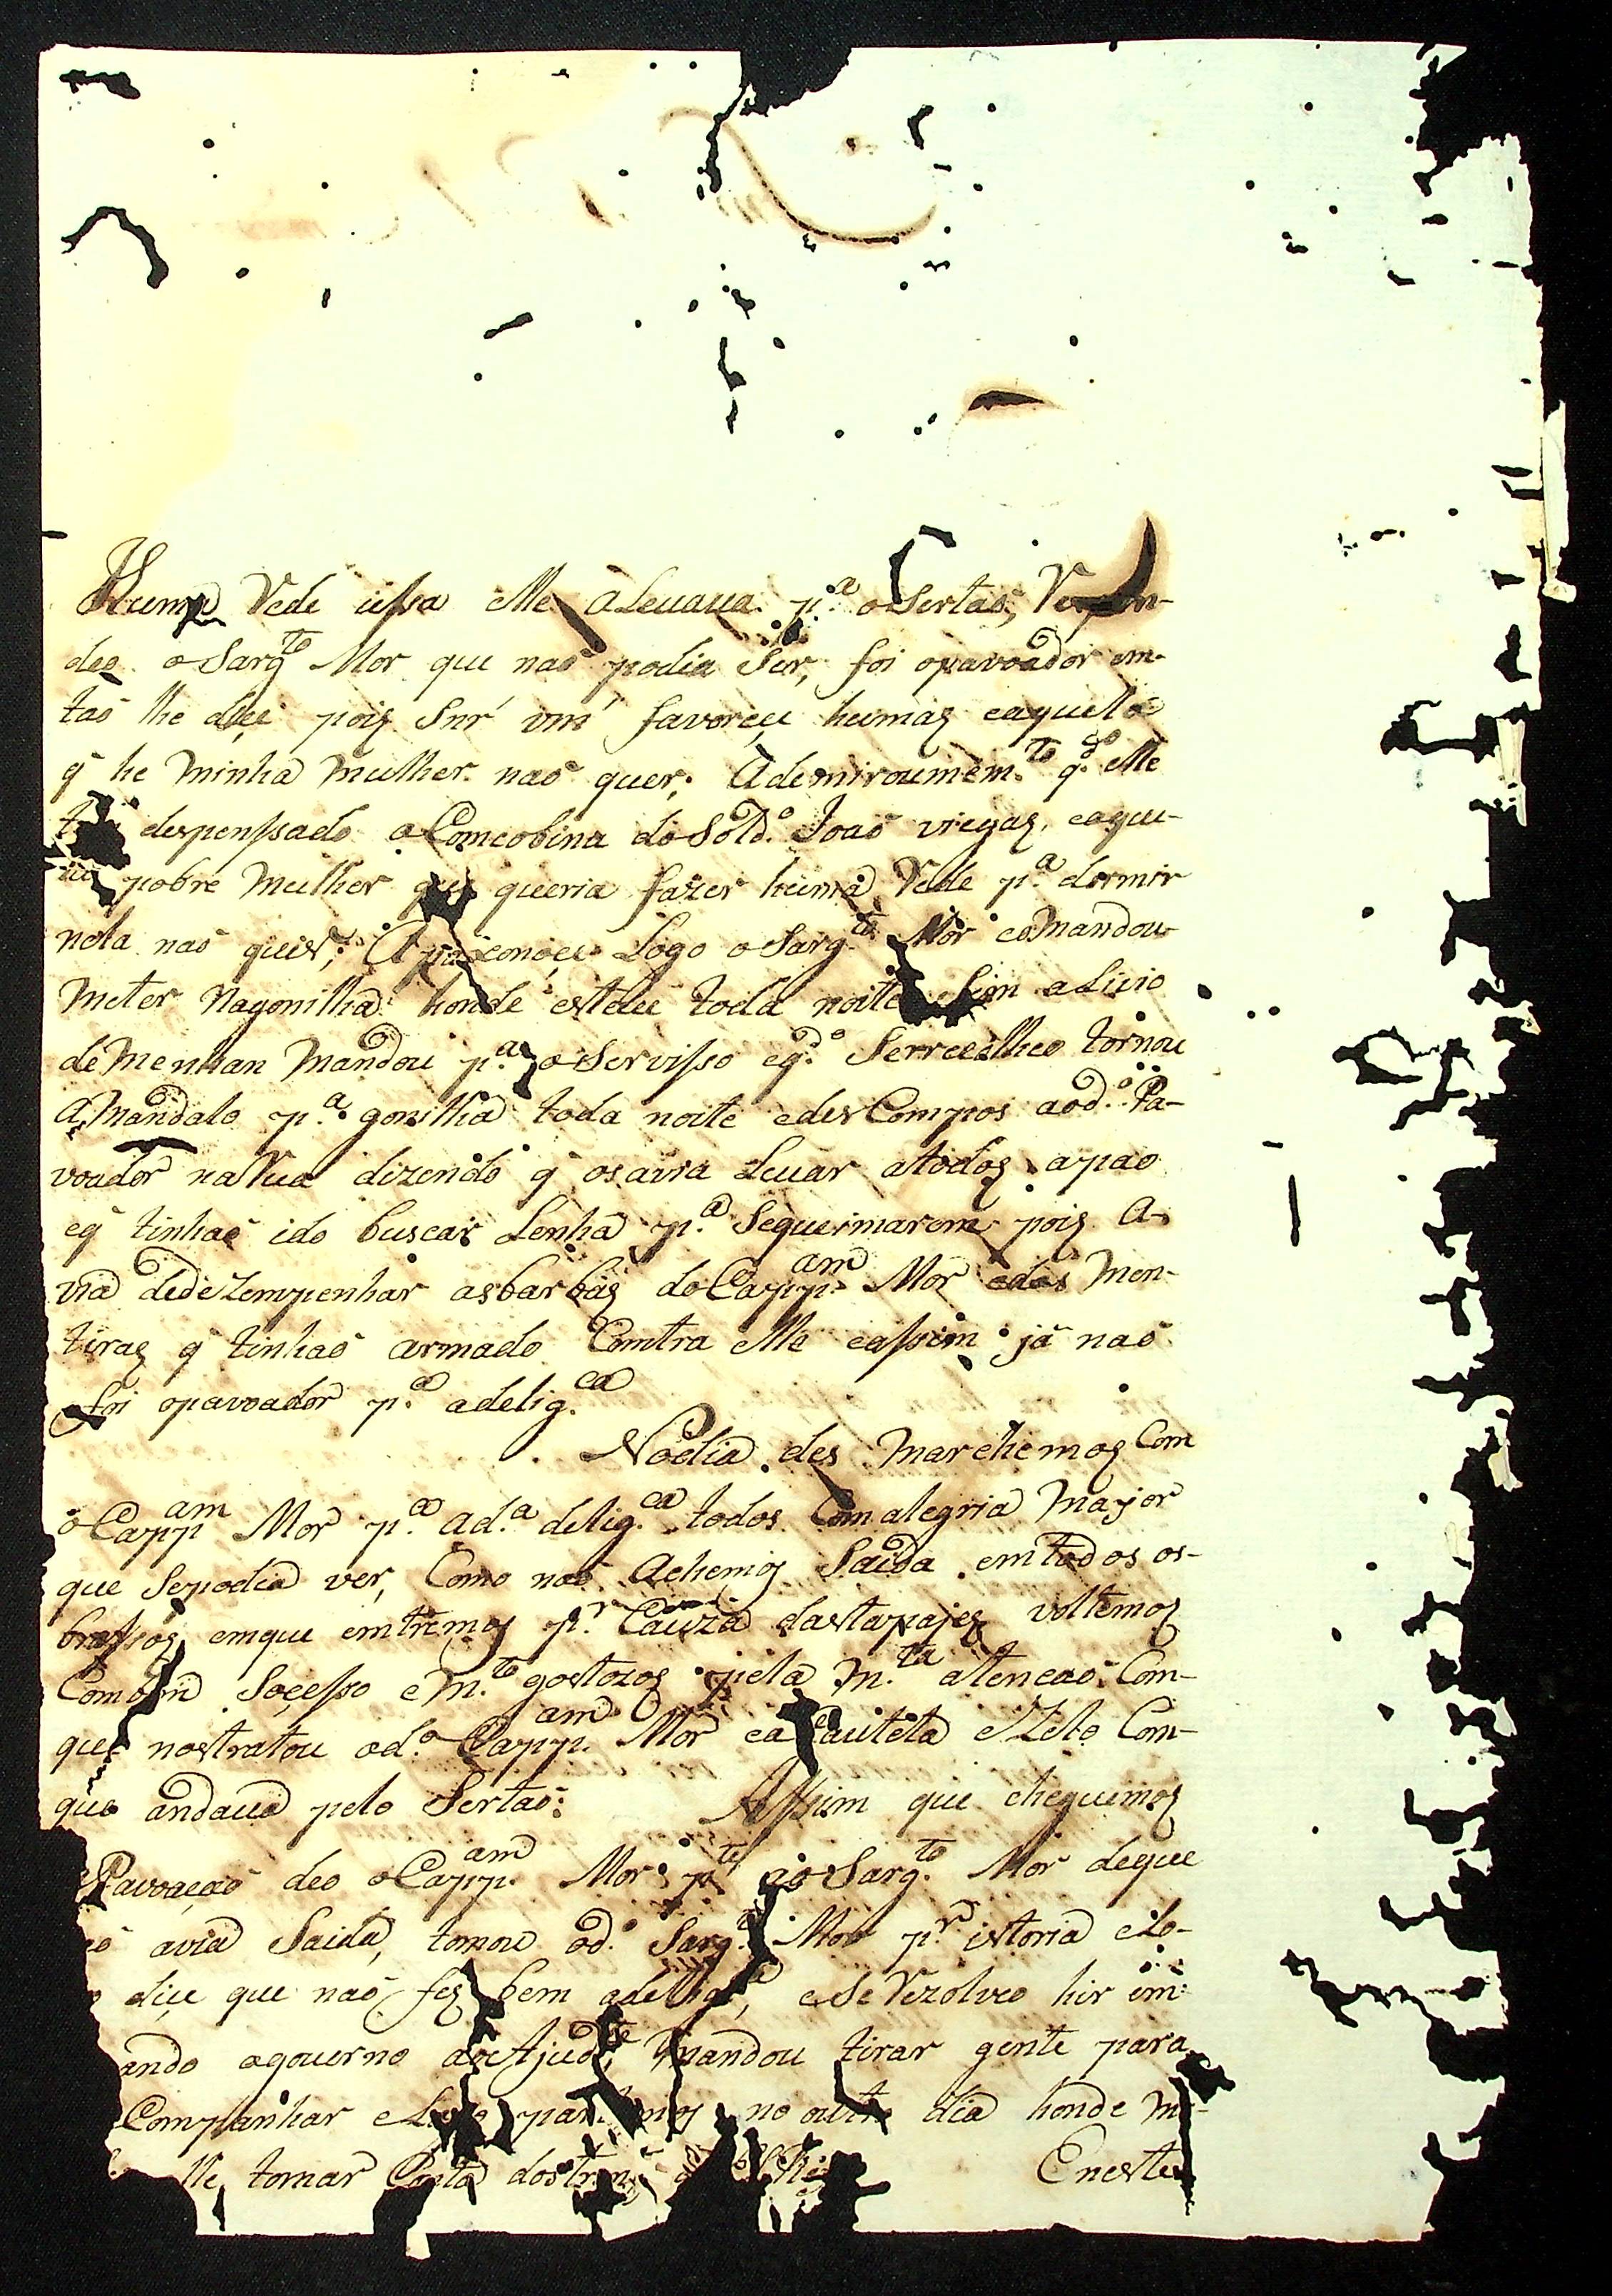 Huma Rede iessa elle a Leuaua p.ª o Sertaõ, Respon-
deo o Sarg.to Mor que naõ podia Ser, foi o pavoador em-
taõ lhe diçe pois Snr' vm' favoreçe humas e aquela
q̃ he minha mulher naõ quer; Ademiroume m.to q.do elle
despenssado a Comcobina do Sold.º Joaõ viegas, e aque-
la pobre mulher que queria fazer huma Rede p.ª dormir
nela naõ quis; Apaixonoçe Logo o Sarg.to Mor e o mandou
meter Nagonilha honde esteue toda noite Sem aLiuio
de menhan mandou p.ª o Servisso e q.do Serrecolheo tornou
A mandalo p.ª gonilha toda noite e des Compos ao d.º Pa-
voador na Rua dizendo q̃ os avia Leuar a todos a pao
e q̃ tinhaõ ido buscar Lenha p.ª Sequeimarem pois A-
via dedezempenhar as barbas do Capp.am Mor e das Men-
tiras q̃ tinhaõ armado Comtra elle e assim já naõ
foi o pavoador p.ª adelig.ca
No dia des Marchemos Com
o Capp.am Mor p.ª a d.ª delig.ca todos Com alegria Major
que Sepodia ver, Como naõ Achemos Saida em todos os
brassos em que emtremos p.r Cauza das tapajes voltemos
Com bom Soçesso e m.to gostozos pela m.ta atencaõ Com-
que nos tratou o d.º Capp.am Mor e a Cautela e Zelo Com-
que andaua pelo Sertaõ: Assim que cheguemos
a Pavoaçaõ deo o Capp.am Mor p.te ao Sarg.to Mor deque
avia Saida, tomou o d.º Sarg.to Mor p.r istoria e Lo-
diçe que naõ fes bem adelig.ca, e Se Rezolveo hir im-
ando o gouerno ao Ajud.te mandou tirar gente para
Companhar e Logo partimos no outro dia honde me
lle tomar Conta dos
Eneste